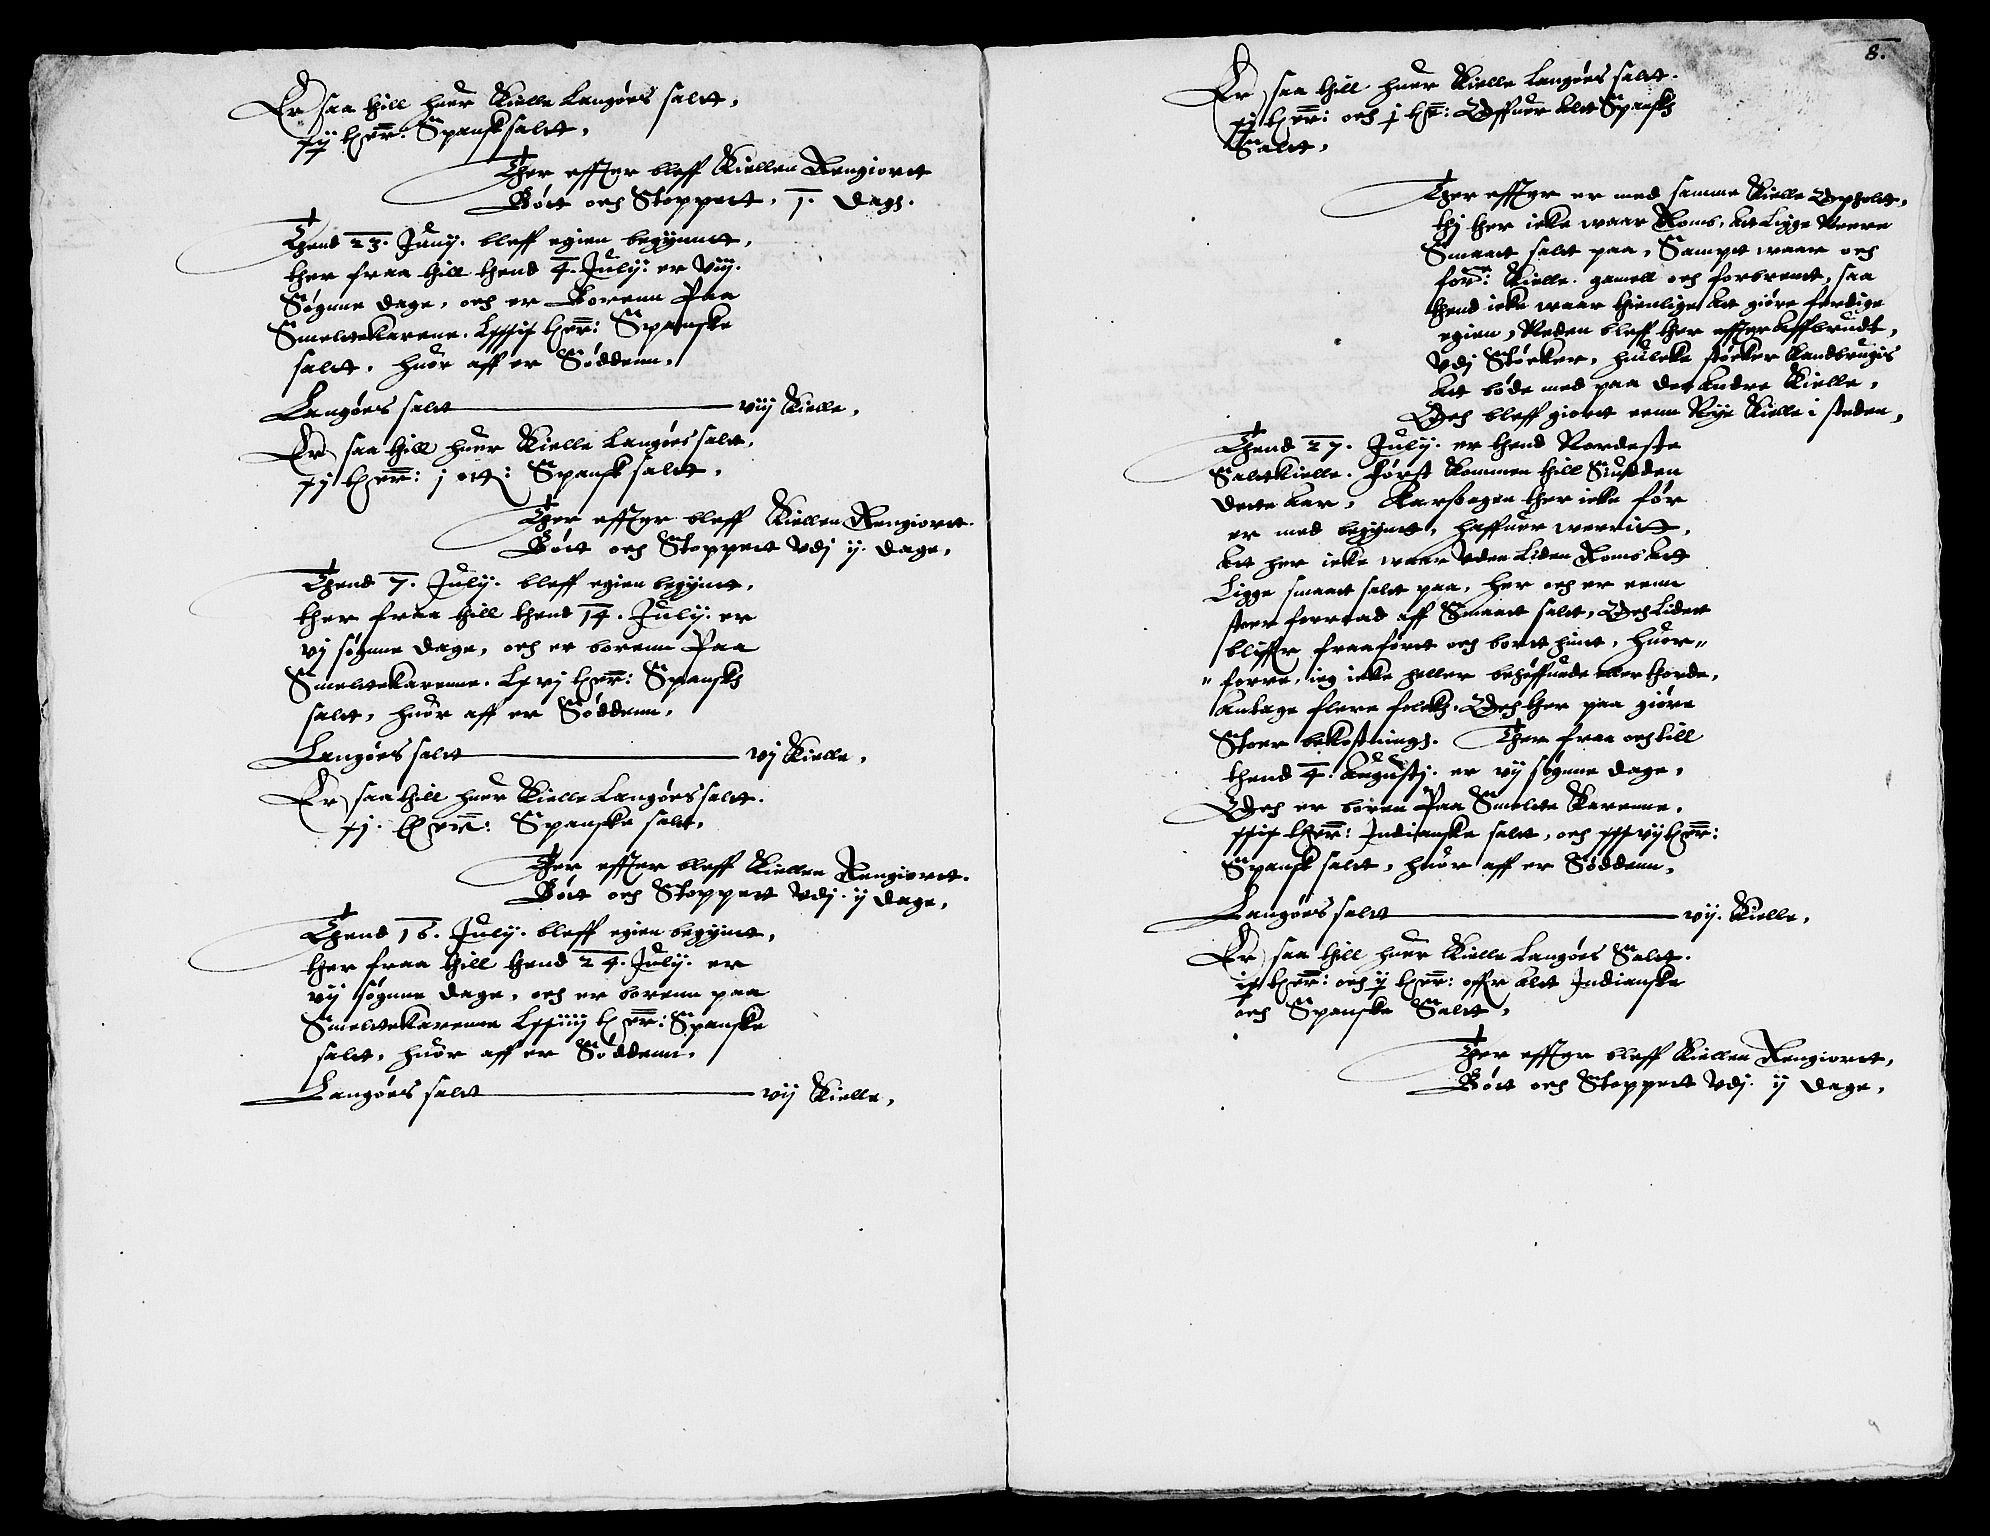 Er saa thill huer Kielle Langøes saltt,
xij therr: Spansk saltt,
Ther effter bleff Kiellen Rengiortt
Bött och Stoppett, 1. dag.
Thend 23. Junij. bleff egien begyntt,
ther fraa thill thend 4. Julij: er viij.
Søgnne dage, och er Borenn Paa
Smeltekarene. Lxxxix therr: Spanske
saltt, huor aff er Søddenn,
Langøes saltt viij Kielle,
Er saa thill huer Kielle Langøes saltt,
xj therr: j ott: Spansk saltt,
Ther effter bleff Kiellen Rengiortt.
Bött och Stoppett vdj ij. dage,
Thend 7. Julij. bleff egien begyntt,
ther fraa thill thend 14. Julij. er
vj søgnne dage, och er borenn Paa
Smeltekarenne. Lxvj therr: Spansk
saltt, huor aff er Søddenn,
Langøes saltt vj Kielle,
Er saa thill huer Kielle Langøes saltt.
xj. therr: Spanske saltt,
Ther effter bleff Kiellen Rengiortt.
Bött och Stoppett vdj. ij dage,
Thend 16. Julij. bleff egien begyntt,
ther fraa thill thend 24. Julij. er
vij søgnne dage, och er borenn paa
Smeltekarenne Lxxiiij therr: Spanske
saltt, huor aff er Søddenn,
Langøes saltt vij Kielle,
8.
Er saa thill huer Kielle Langøes saltt.
xj therr: och j therr: Offuer altt Spansk
Saltt,
Ther effter er med samme Kielle Opholtt,
thj ther icke waar Roms, att Ligge Meere
Smaatt saltt paa, Sampt waar och
for: Kielle. gamell och forbrentt, saa
thend icke waar thienlige att giøre ferdige
egien, Meden bleff ther effter affbrudt,
vdj Støcker, huilcke støcker handbrugis
att bøde med paa de andre Kielle,
Och bleff giortt eenn Nye Kielle i steden,
Thend 27. Julij. er thend Nordeste
Saltkielle. først kommen thill Siuffden
dette aar, Aarsagen ther icke før
er med begyntt, haffuer werritt,
att her icke waar vden Liden Roms att
Ligge smaatt saltt paa, her och er eenn
stoer forraad aff Smaatt saltt, Och Lidett
bliffr fraaførtt och bortt hint, huor=
=forre, ieg icke heller behøffuede eller thorde,
antage flere folck. Och ther paa giøre
Stoer bekostning. Ther fraa och till
thend 4. Augustj. er vij søgnne dage,
Och er boren Paa Smelte Karenne.
xxix therr: Indianske saltt, och xxxvij therr:
Spansk saltt, huor aff er Søddenn,
Langøes saltt vij. Kielle,
Er saa thill huer Kielle Langøes Saltt.
ix therr: och ij therr: offr altt Indianske
och Spanske Saltt,
Ther effter bleff Kiellen Rengiortt,
Bött och Stoppett vdj. ij dage,